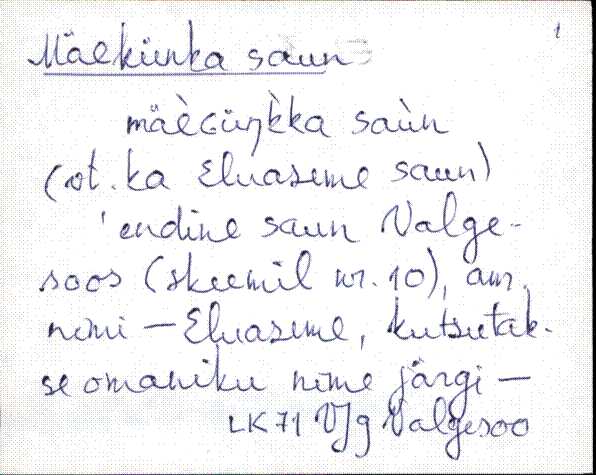 1
Mäekünka saun
mäèGüŋk̀ka saùn
(vt. ka Eluaseme saun)
'endine saun Valge-
soos (skeemil nr. 10), am.
nimi — Eluaseme, kutsutak-
se omaniku nime järgi —
LK 71 Vg Valgesoo